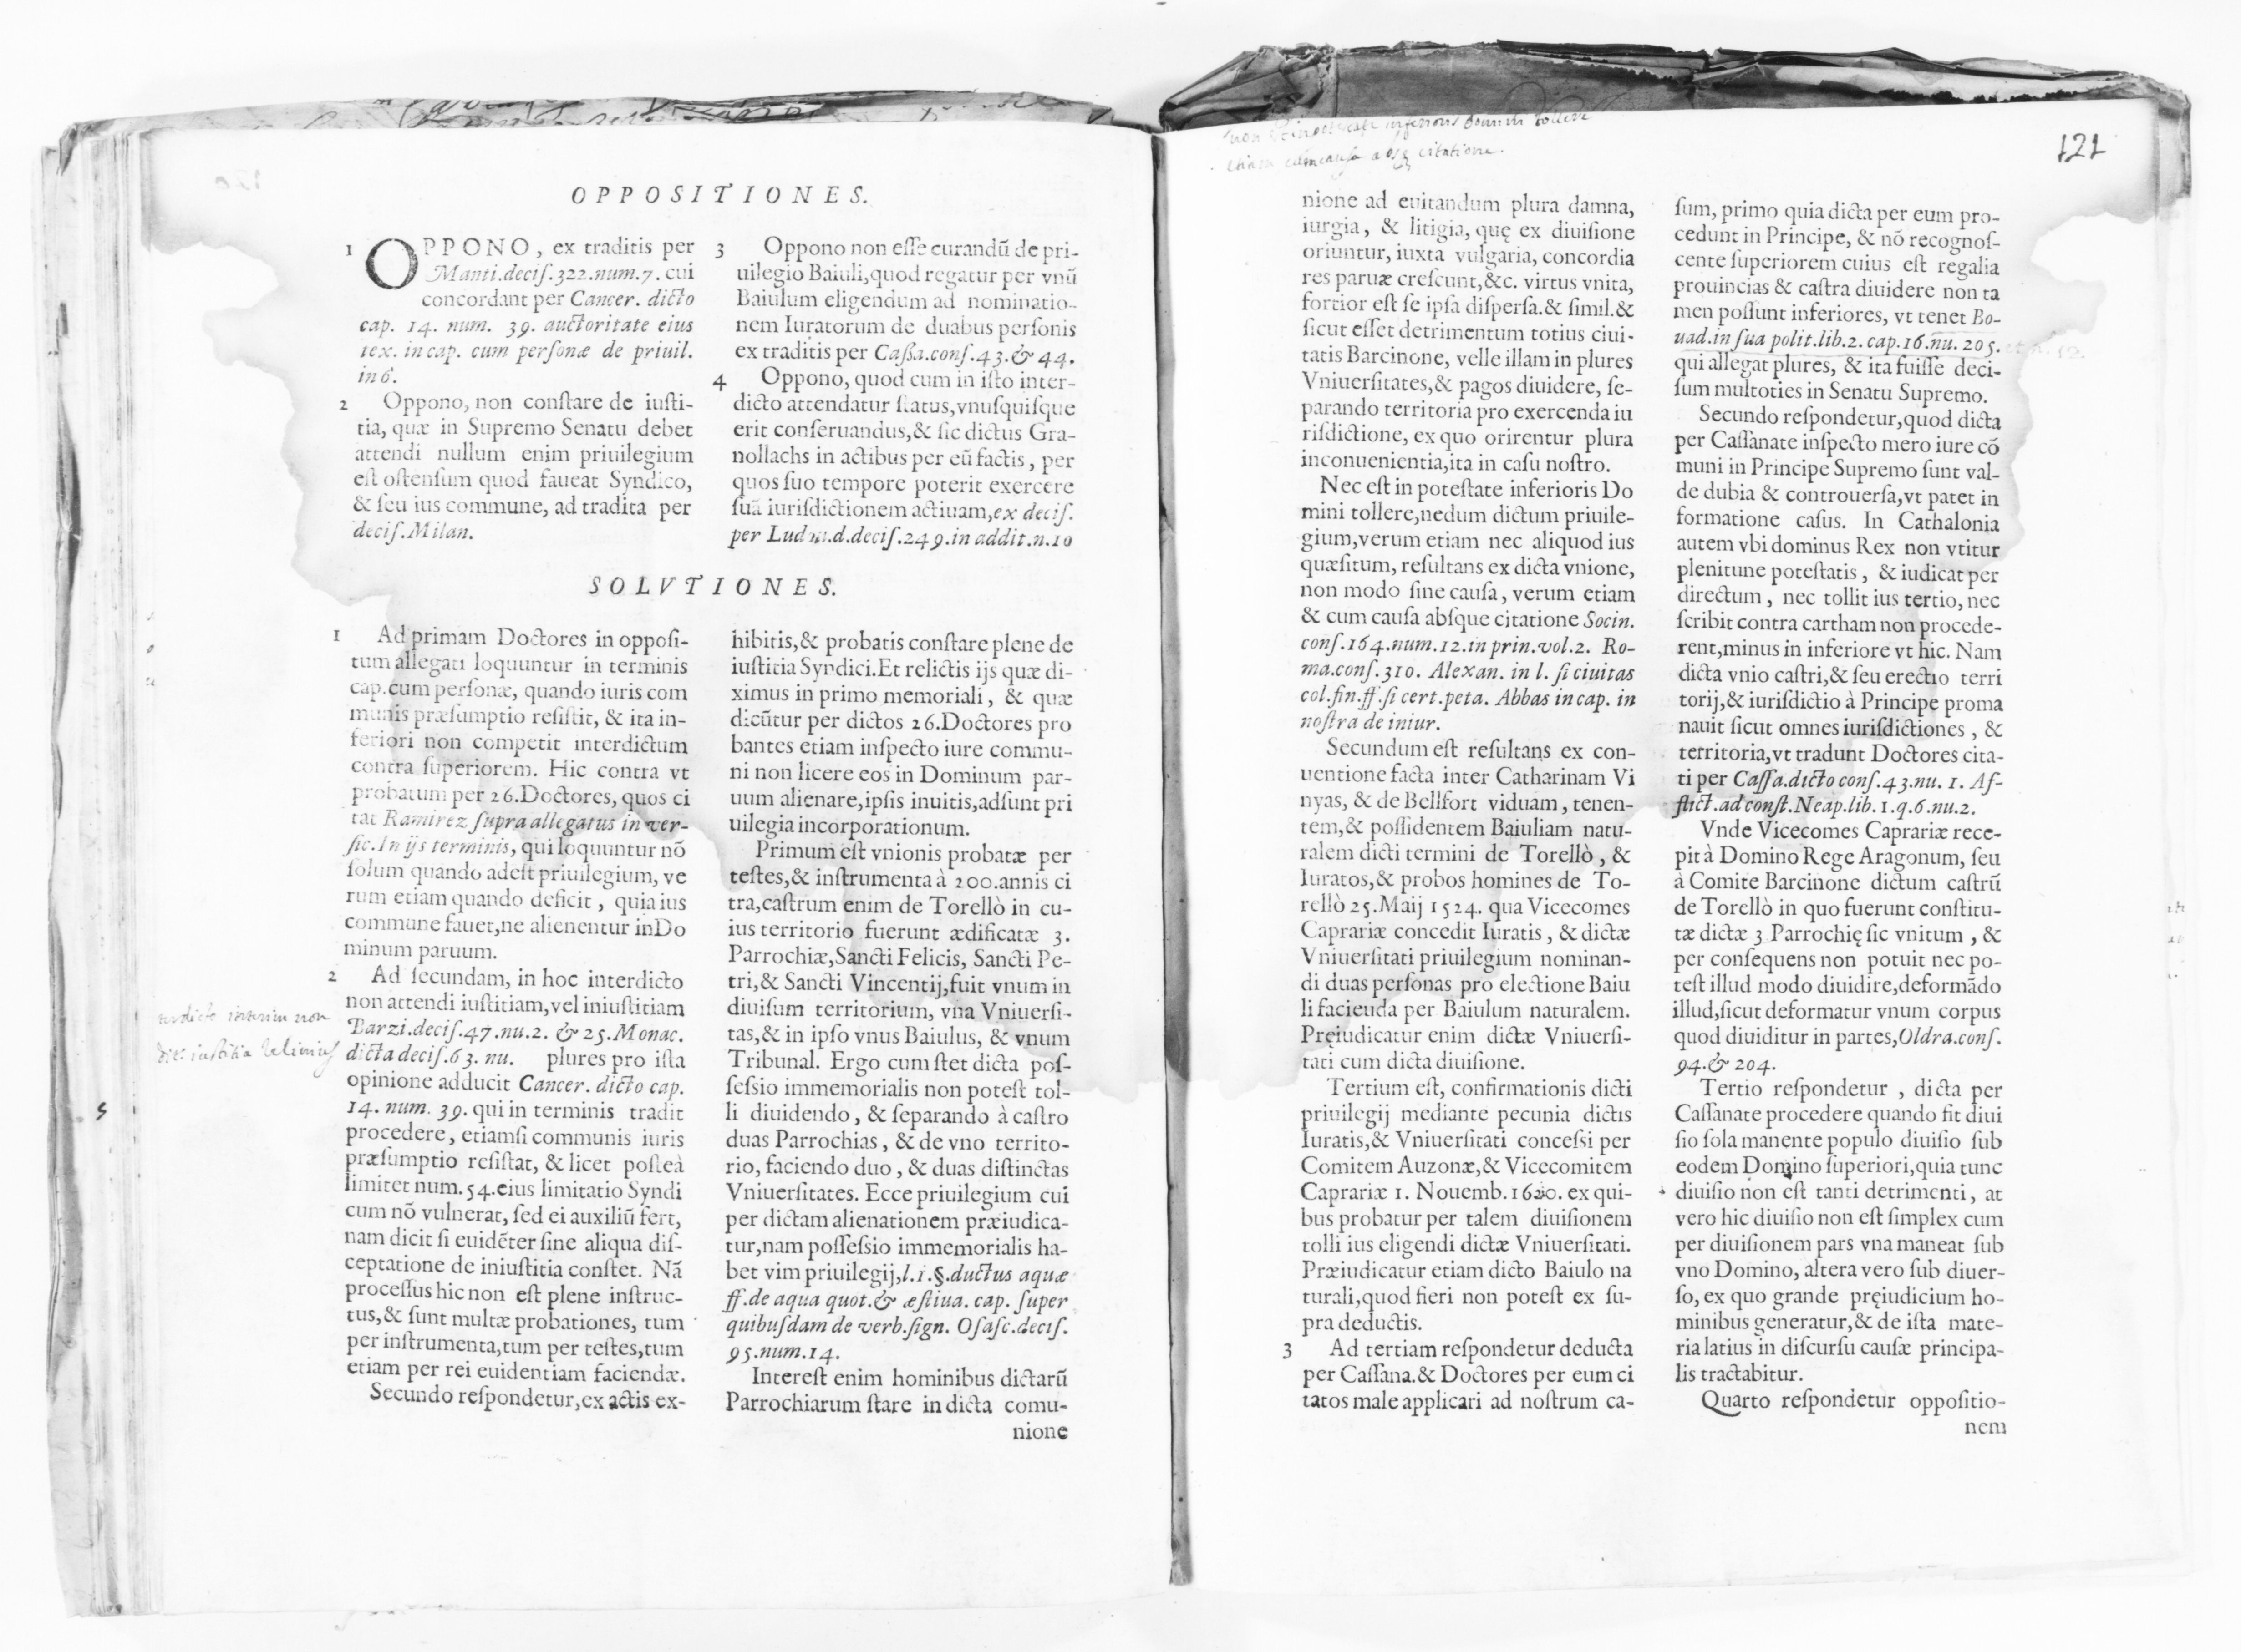 OPPOSITIONES.
1 OPPONO, ex traditis per
Manti.decis.322.num.7. cui
concordant per Cancer. dicto
cap. 14. num. 39. auctoritate eius
tex. in cap. cum personæ de priuil.
in 6.
2 Oppono, non constare de iusti-
tia, quæ in Supremo Senatu debet
attendi nullum enim priuilegium
est ostensum quod faueat Syndico,
& seu ius commune, ad tradita per
decis.Milan.
3 Oppono non esse curandū de pri-
uilegio Baiuli,quod regatur per vnū
Baiulum eligendum ad nominatio-
nem Iuratorum de duabus personis
ex traditis per Cassa.cons.43.& 44.
4 Oppono, quod cum in isto inter-
dicto attendatur status,vnusquisque
erit conseruandus,& sic dictus Gra-
nollachs in actibus per eū factis, per
quos suo tempore poterit exercere
suā iurisdictionem actiuam,ex decis.
per Ludou.d.decis.249.in addit.n.10
SOLVTIONES.
1 Ad primam Doctores in opposi-
tum allegati loquuntur in terminis
cap.cum personæ, quando iuris com
munis præsumptio resistit, & ita in-
feriori non competit interdictum
contra superiorem. Hic contra vt
probatum per 26.Doctores, quos ci
tat Ramirez supra allegatus in ver-
sic.In ijs terminis, qui loquuntur nō
solum quando adest priuilegium, ve
rum etiam quando deficit, quia ius
commune fauet,ne alienentur inDo
minum paruum.
2 Ad secundam, in hoc interdicto
non attendi iustitiam,vel iniustitiam
Barzi.decis.47.nu.2. & 25.Monac.
dicta decis.63. nu. plures pro ista
opinione adducit Cancer. dicto cap.
14. num. 39. qui in terminis tradit
procedere, etiamsi communis iuris
præsumptio resistat, & licet posteà
limitet num.54.eius limitatio Syndi
cum nō vulnerat, sed ei auxiliū fert,
nam dicit si euidēter sine aliqua dis-
ceptatione de iniustitia constet. Nā
processus hic non est plene instruc-
tus,& sunt multæ probationes, tum
per instrumenta,tum per testes,tum
etiam per rei euidentiam faciendæ.
Secundo respondetur,ex actis ex-
hibitis,& probatis constare plene de
iustitia Syndici.Et relictis ijs quæ di-
ximus in primo memoriali, & quæ
dicūtur per dictos 26.Doctores pro
bantes etiam inspecto iure commu-
ni non licere eos in Dominum par-
uum alienare,ipsis inuitis,adsunt pri
uilegia incorporationum.
Primum est vnionis probatæ per
testes,& instrumenta à 200.annis ci
tra,castrum enim de Torellò in cu-
ius territorio fuerunt ædificatæ 3.
Parrochiæ,Sancti Felicis, Sancti Pe-
tri,& Sancti Vincentij,fuit vnum in
diuisum territorium, vna Vniuersi-
tas,& in ipso vnus Baiulus, & vnum
Tribunal. Ergo cum stet dicta pos-
sessio immemorialis non potest tol-
li diuidendo, & separando à castro
duas Parrochias, & de vno territo-
rio, faciendo duo, & duas distinctas
Vniuersitates. Ecce priuilegium cui
per dictam alienationem præiudica-
tur,nam possessio immemorialis ha-
bet vim priuilegij,l.1.§.ductus aquæ
ff.de aqua quot.& æstiua. cap. super
quibusdam de verb.sign. Osasc.decis.
95.num.14.
Interest enim hominibus dictarū
Parrochiarum stare in dicta comu-
nione
121
nione ad euitandum plura damna,
iurgia, & litigia, quę ex diuisione
oriuntur, iuxta vulgaria, concordia
res paruæ crescunt,&c. virtus vnita,
fortior est se ipsa dispersa.& simil.&
sicut esset detrimentum totius ciui-
tatis Barcinone, velle illam in plures
Vniuersitates,& pagos diuidere, se-
parando territoria pro exercenda iu
risdictione, ex quo orirentur plura
inconuenientia,ita in casu nostro.
Nec est in potestate inferioris Do
mini tollere,nedum dictum priuile-
gium,verum etiam nec aliquod ius
quæsitum, resultans ex dicta vnione,
non modo sine causa, verum etiam
& cum causa absque citatione Socin.
cons.164.num.12.in prin.vol.2. Ro-
ma.cons.310. Alexan. in l. si ciuitas
col.fin.ff.si cert.peta. Abbas in cap. in
nostra de iniur.
Secundum est resultans ex con-
uentione facta inter Catharinam Vi
nyas, & de Bellfort viduam, tenen-
tem,& possidentem Baiuliam natu-
ralem dicti termini de Torellò, &
Iuratos,& probos homines de To-
rellò 25.Maij 1524. qua Vicecomes
Caprariæ concedit Iuratis, & dictæ
Vniuersitati priuilegium nominan-
di duas personas pro electione Baiu
li facienda per Baiulum naturalem.
Pręiudicatur enim dictæ Vniuersi-
tati cum dicta diuisione.
Tertium est, confirmationis dicti
priuilegij mediante pecunia dictis
Iuratis,& Vniuersitati concessi per
Comitem Auzonæ,& Vicecomitem
Caprariæ 1. Nouemb.1620. ex qui-
bus probatur per talem diuisionem
tolli ius eligendi dictæ Vniuersitati.
Præiudicatur etiam dicto Baiulo na
turali,quod fieri non potest ex su-
pra deductis.
3 Ad tertiam respondetur deducta
per Cassana.& Doctores per eum ci
tatos male applicari ad nostrum ca-
sum, primo quia dicta per eum pro-
cedunt in Principe, & nō recognos-
cente superiorem cuius est regalia
prouincias & castra diuidere non ta
men possunt inferiores, vt tenet Bo-
uad.in sua polit.lib.2. cap.16.nu. 205.
qui allegat plures, & ita fuisse deci-
sum multoties in Senatu Supremo.
Secundo respondetur,quod dicta
per Cassanate inspecto mero iure cō
muni in Principe Supremo sunt val-
de dubia & controuersa,vt patet in
formatione casus. In Cathalonia
autem vbi dominus Rex non vtitur
plenitune potestatis, & iudicat per
directum, nec tollit ius tertio, nec
scribit contra cartham non procede-
rent,minus in inferiore vt hic. Nam
dicta vnio castri,& seu erectio terri
torij,& iurisdictio à Principe proma
nauit sicut omnes iurisdictiones, &
territoria,vt tradunt Doctores cita-
ti per Cassa.dicto cons.43.nu. 1. Af-
flict.ad const.Neap.lib.1.q.6.nu.2.
Vnde Vicecomes Caprariæ rece-
pit à Domino Rege Aragonum, seu
à Comite Barcinone dictum castrū
de Torellò in quo fuerunt constitu-
tæ dictæ 3 Parrochię sic vnitum, &
per consequens non potuit nec po-
test illud modo diuidire,deformādo
illud,sicut deformatur vnum corpus
quod diuiditur in partes,Oldra.cons.
94.& 204.
Tertio respondetur, dicta per
Cassanate procedere quando fit diui
sio sola manente populo diuisio sub
eodem Domino superiori,quia tunc
diuisio non est tanti detrimenti, at
vero hic diuisio non est simplex cum
per diuisionem pars vna maneat sub
vno Domino, altera vero sub diuer-
so, ex quo grande pręiudicium ho-
minibus generatur,& de ista mate-
ria latius in discursu causæ principa-
lis tractabitur.
Quarto respondetur oppositio-
nem